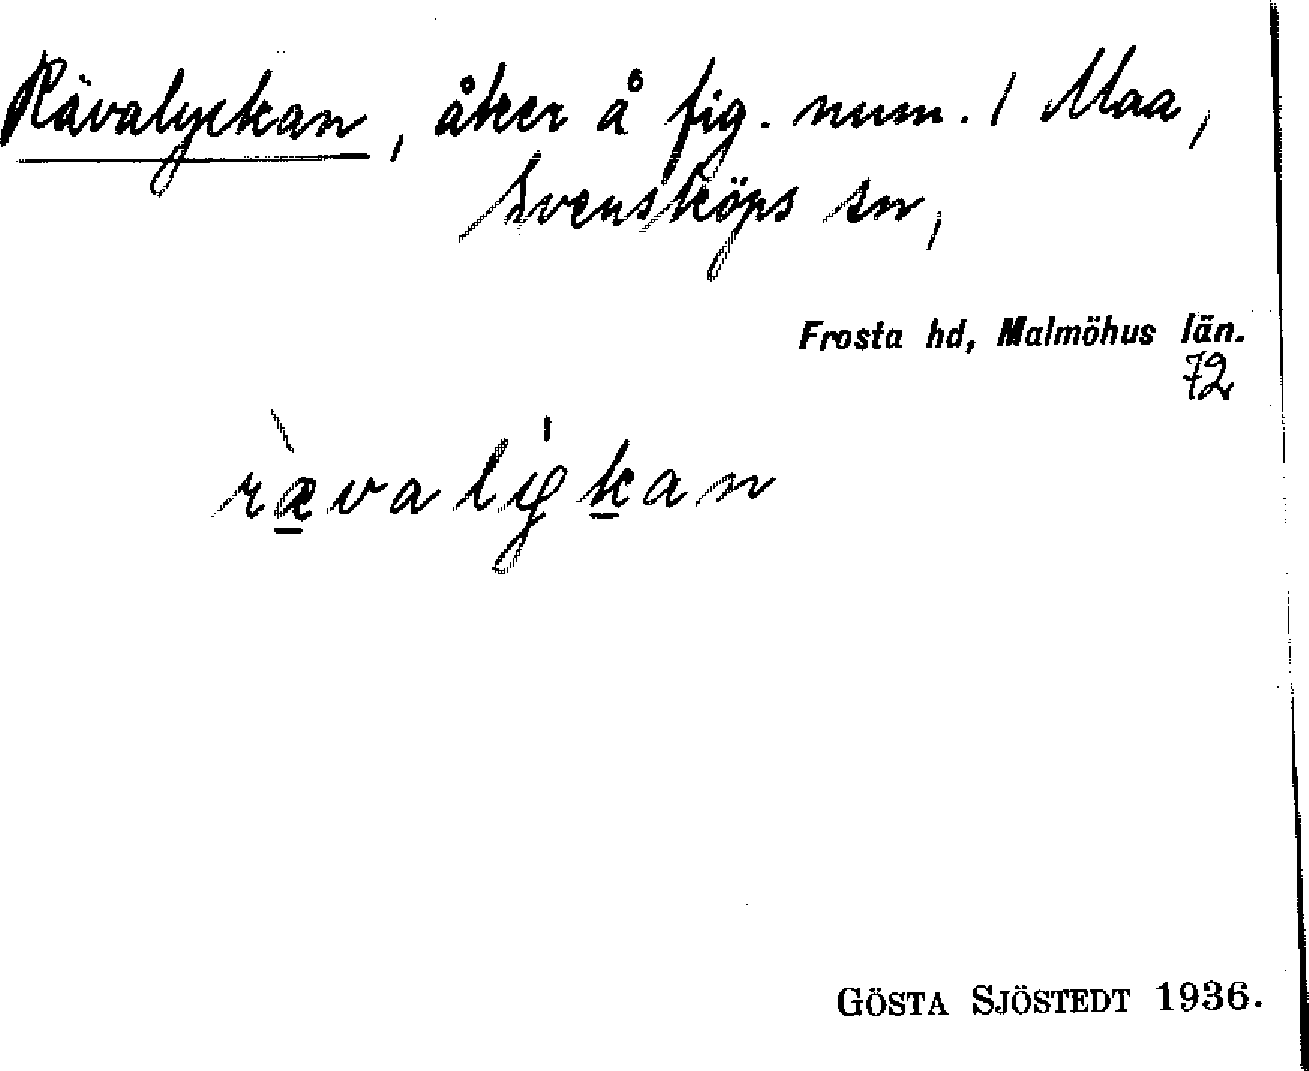 Rävalyckan, åker å fig. num. 1 Maa,
Svensköps sn,
Frosta hd, Malmöhus län.
72
ræ̀valýkan
GÖSTA SJÖSTEDT 1936.